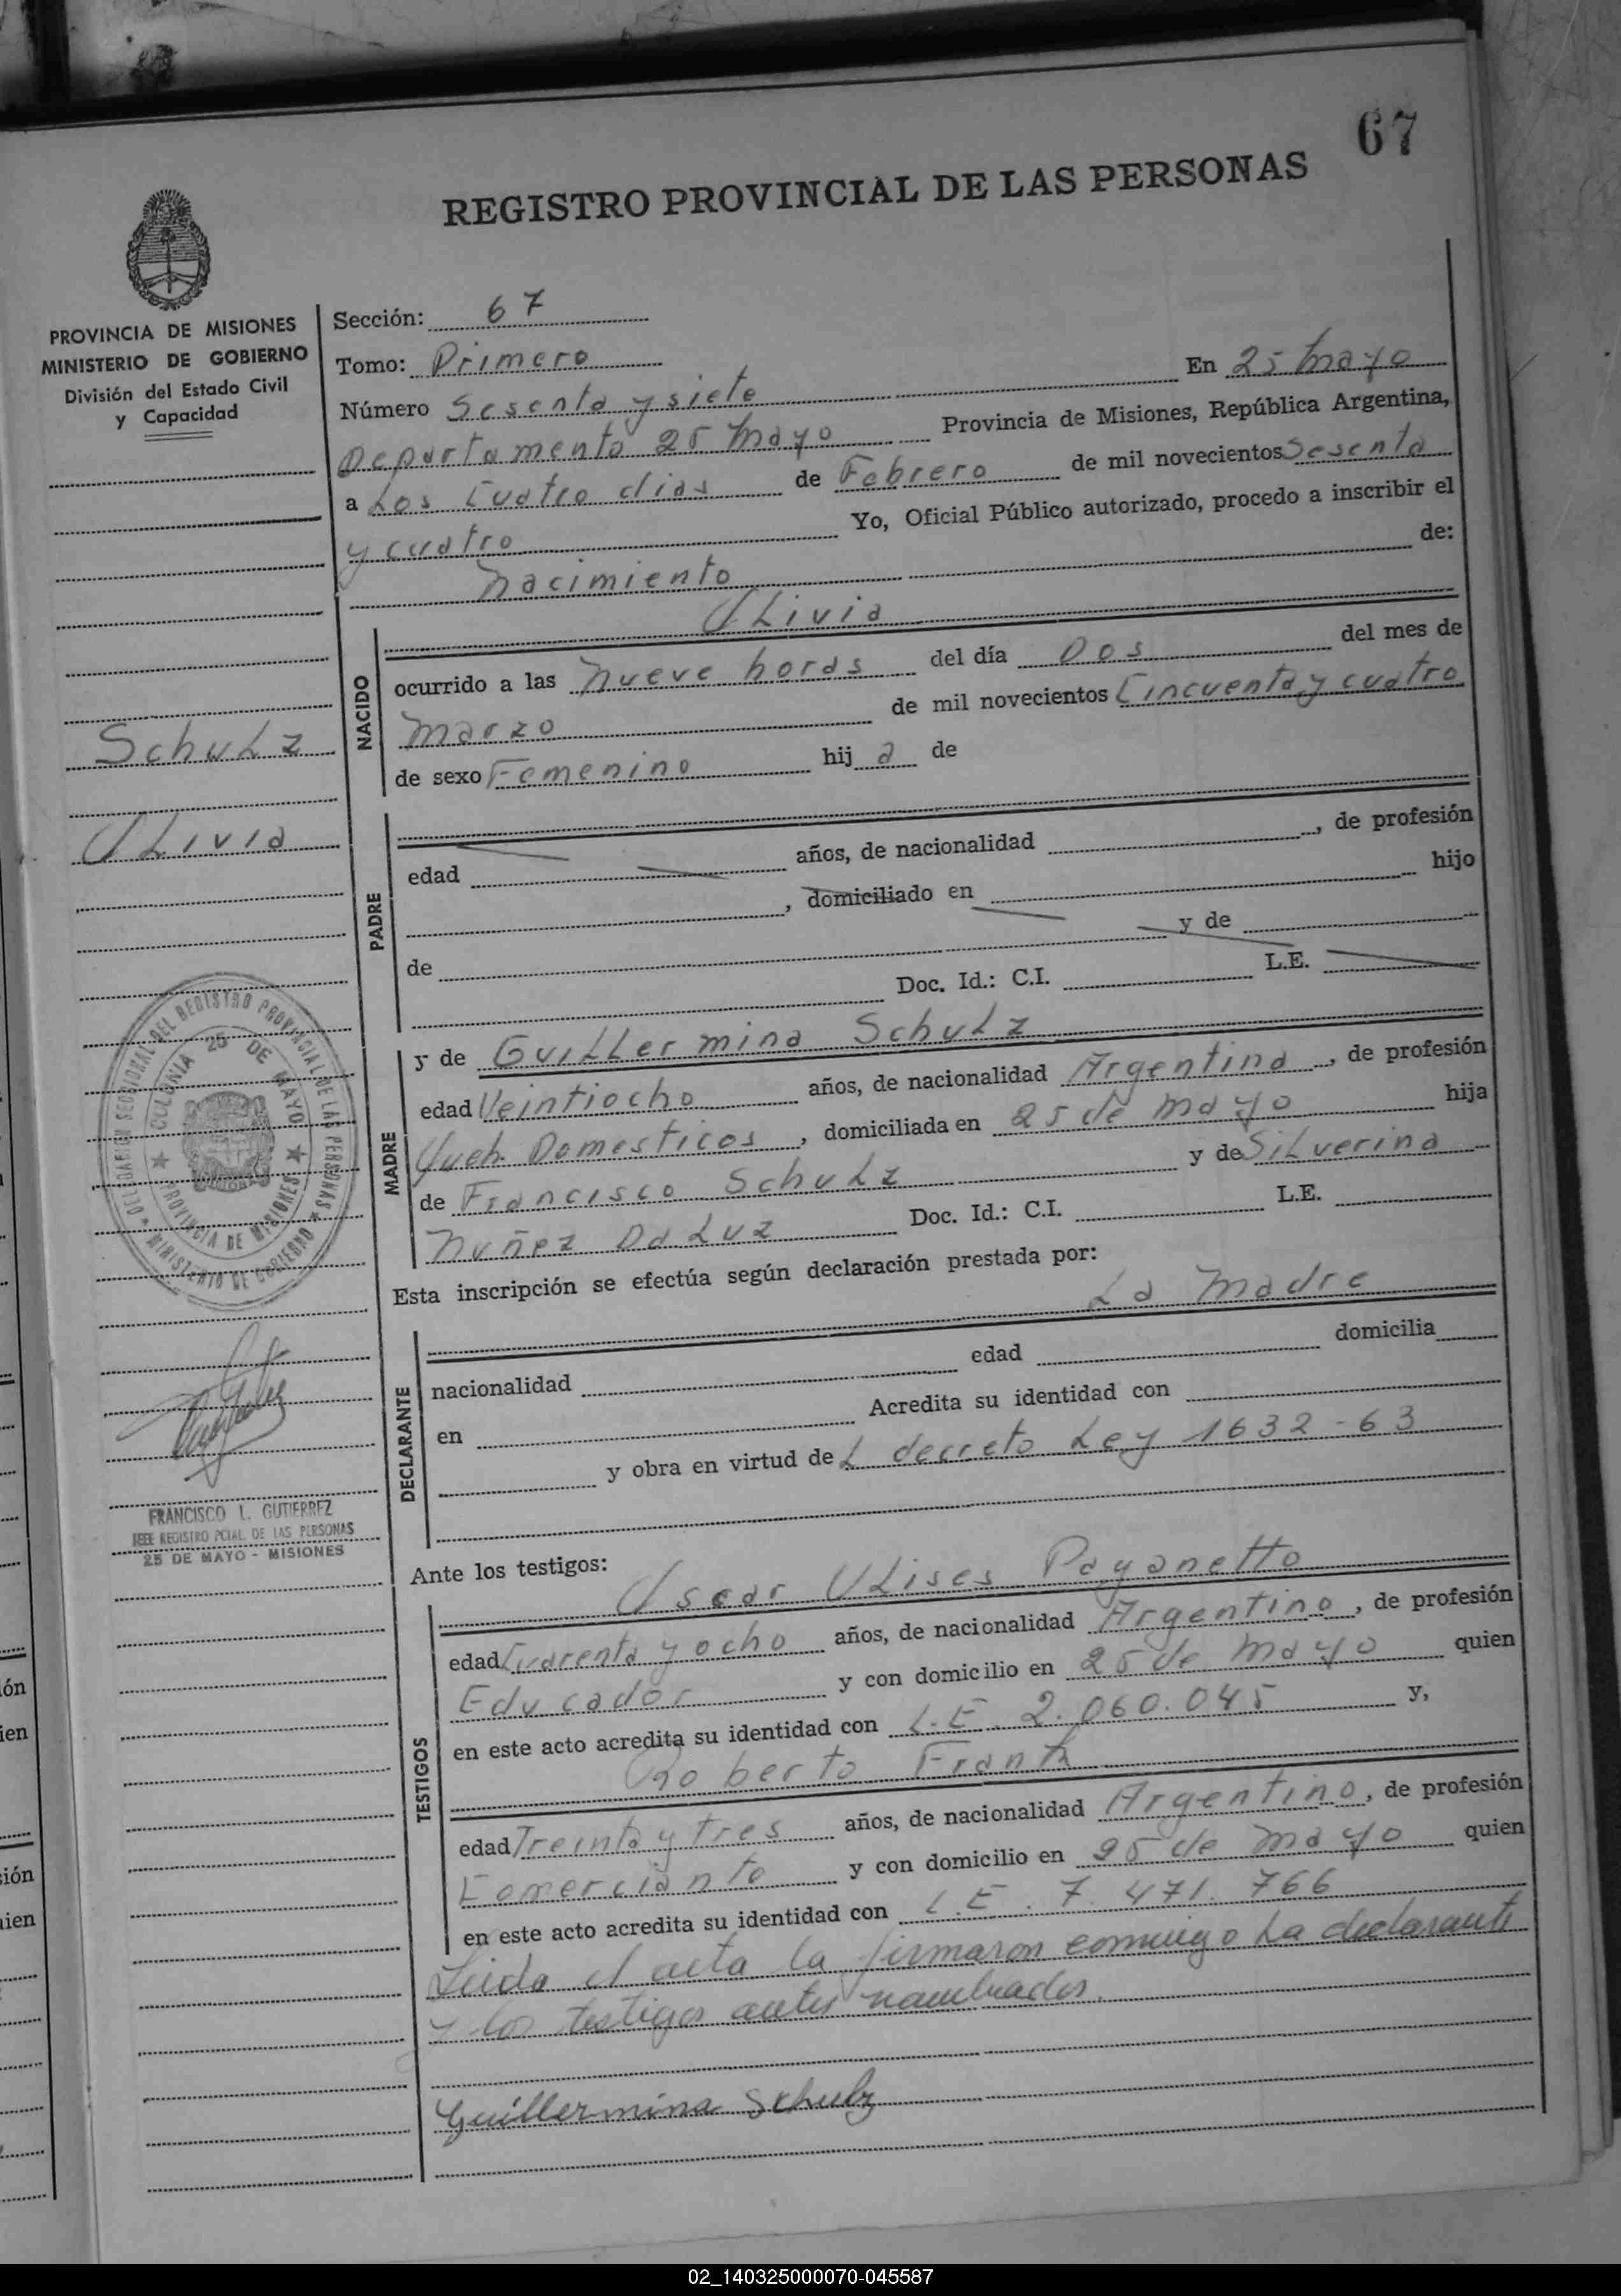 67
REGISTRO PROVINCIAL DE LAS PERSONAS
PROVINCIA DE MISIONES
MINISTERIO DE GOBIERNO
División del Estado Civil
y Capacidad
Schulz
Olivia
OFICIAL SECCIONAL DEL REGISTRO PROVINCIAL DE LAS PERSONAS
MINISTERIO DE GOBIERNO
COLONIA 25 DE MAYO
PROVINCIA DE MISIONES
FRANCISCO L. GUTIERREZ
JEFE REGISTRO PCIAL. DE LAS PERSONAS
25 DE MAYO - MISIONES
Sección: 67
Tomo: Primero
Número Sesenta y siete En 25 Mayo
Departamento 25 Mayo Provincia de Misiones, República Argentina,
a Los Cuatro dias de Febrero de mil novecientos Sesenta
y cuatro Yo, Oficial Público autorizado, procedo a inscribir el
Nacimiento de:
Olivia
NACIDO
ocurrido a las Nueve horas del día Dos del mes de
Marzo de mil novecientos Cincuenta y cuatro
de sexo Femenino hij a de
PADRE
edad años, de nacionalidad , de profesión
, domiciliado en hijo
de y de
Doc. Id.: C.I. L.E.
MADRE
y de Guillermina Schulz
edad Veintiocho años, de nacionalidad Argentina , de profesión
Queh. Domesticos , domiciliada en 25 de Mayo hija
de Francisco Schulz y de Silverina
Nuñez Da Luz Doc. Id.: C.I. L.E.
Esta inscripción se efectúa según declaración prestada por:
La Madre
DECLARANTE
nacionalidad edad domicilia
en Acredita su identidad con
y obra en virtud de L decreto Ley 1632-63
Ante los testigos:
Oscar Ulises Payanetto
TESTIGOS
edad Cuarenta y ocho años, de nacionalidad Argentino , de profesión
Educador y con domicilio en 25 de Mayo quien
en este acto acredita su identidad con L.E. 2.060.045 y,
Roberto Frank
edad Treinta y tres años, de nacionalidad Argentino , de profesión
Comercianto y con domicilio en 25 de Mayo quien
en este acto acredita su identidad con L.E. 7.471.766
Leida el acta la firmaron conmigo La declarante
y los testigos antes nombrados.
Guillermina Schulz
ón
ien
ión
uien
02_140325000070-045587